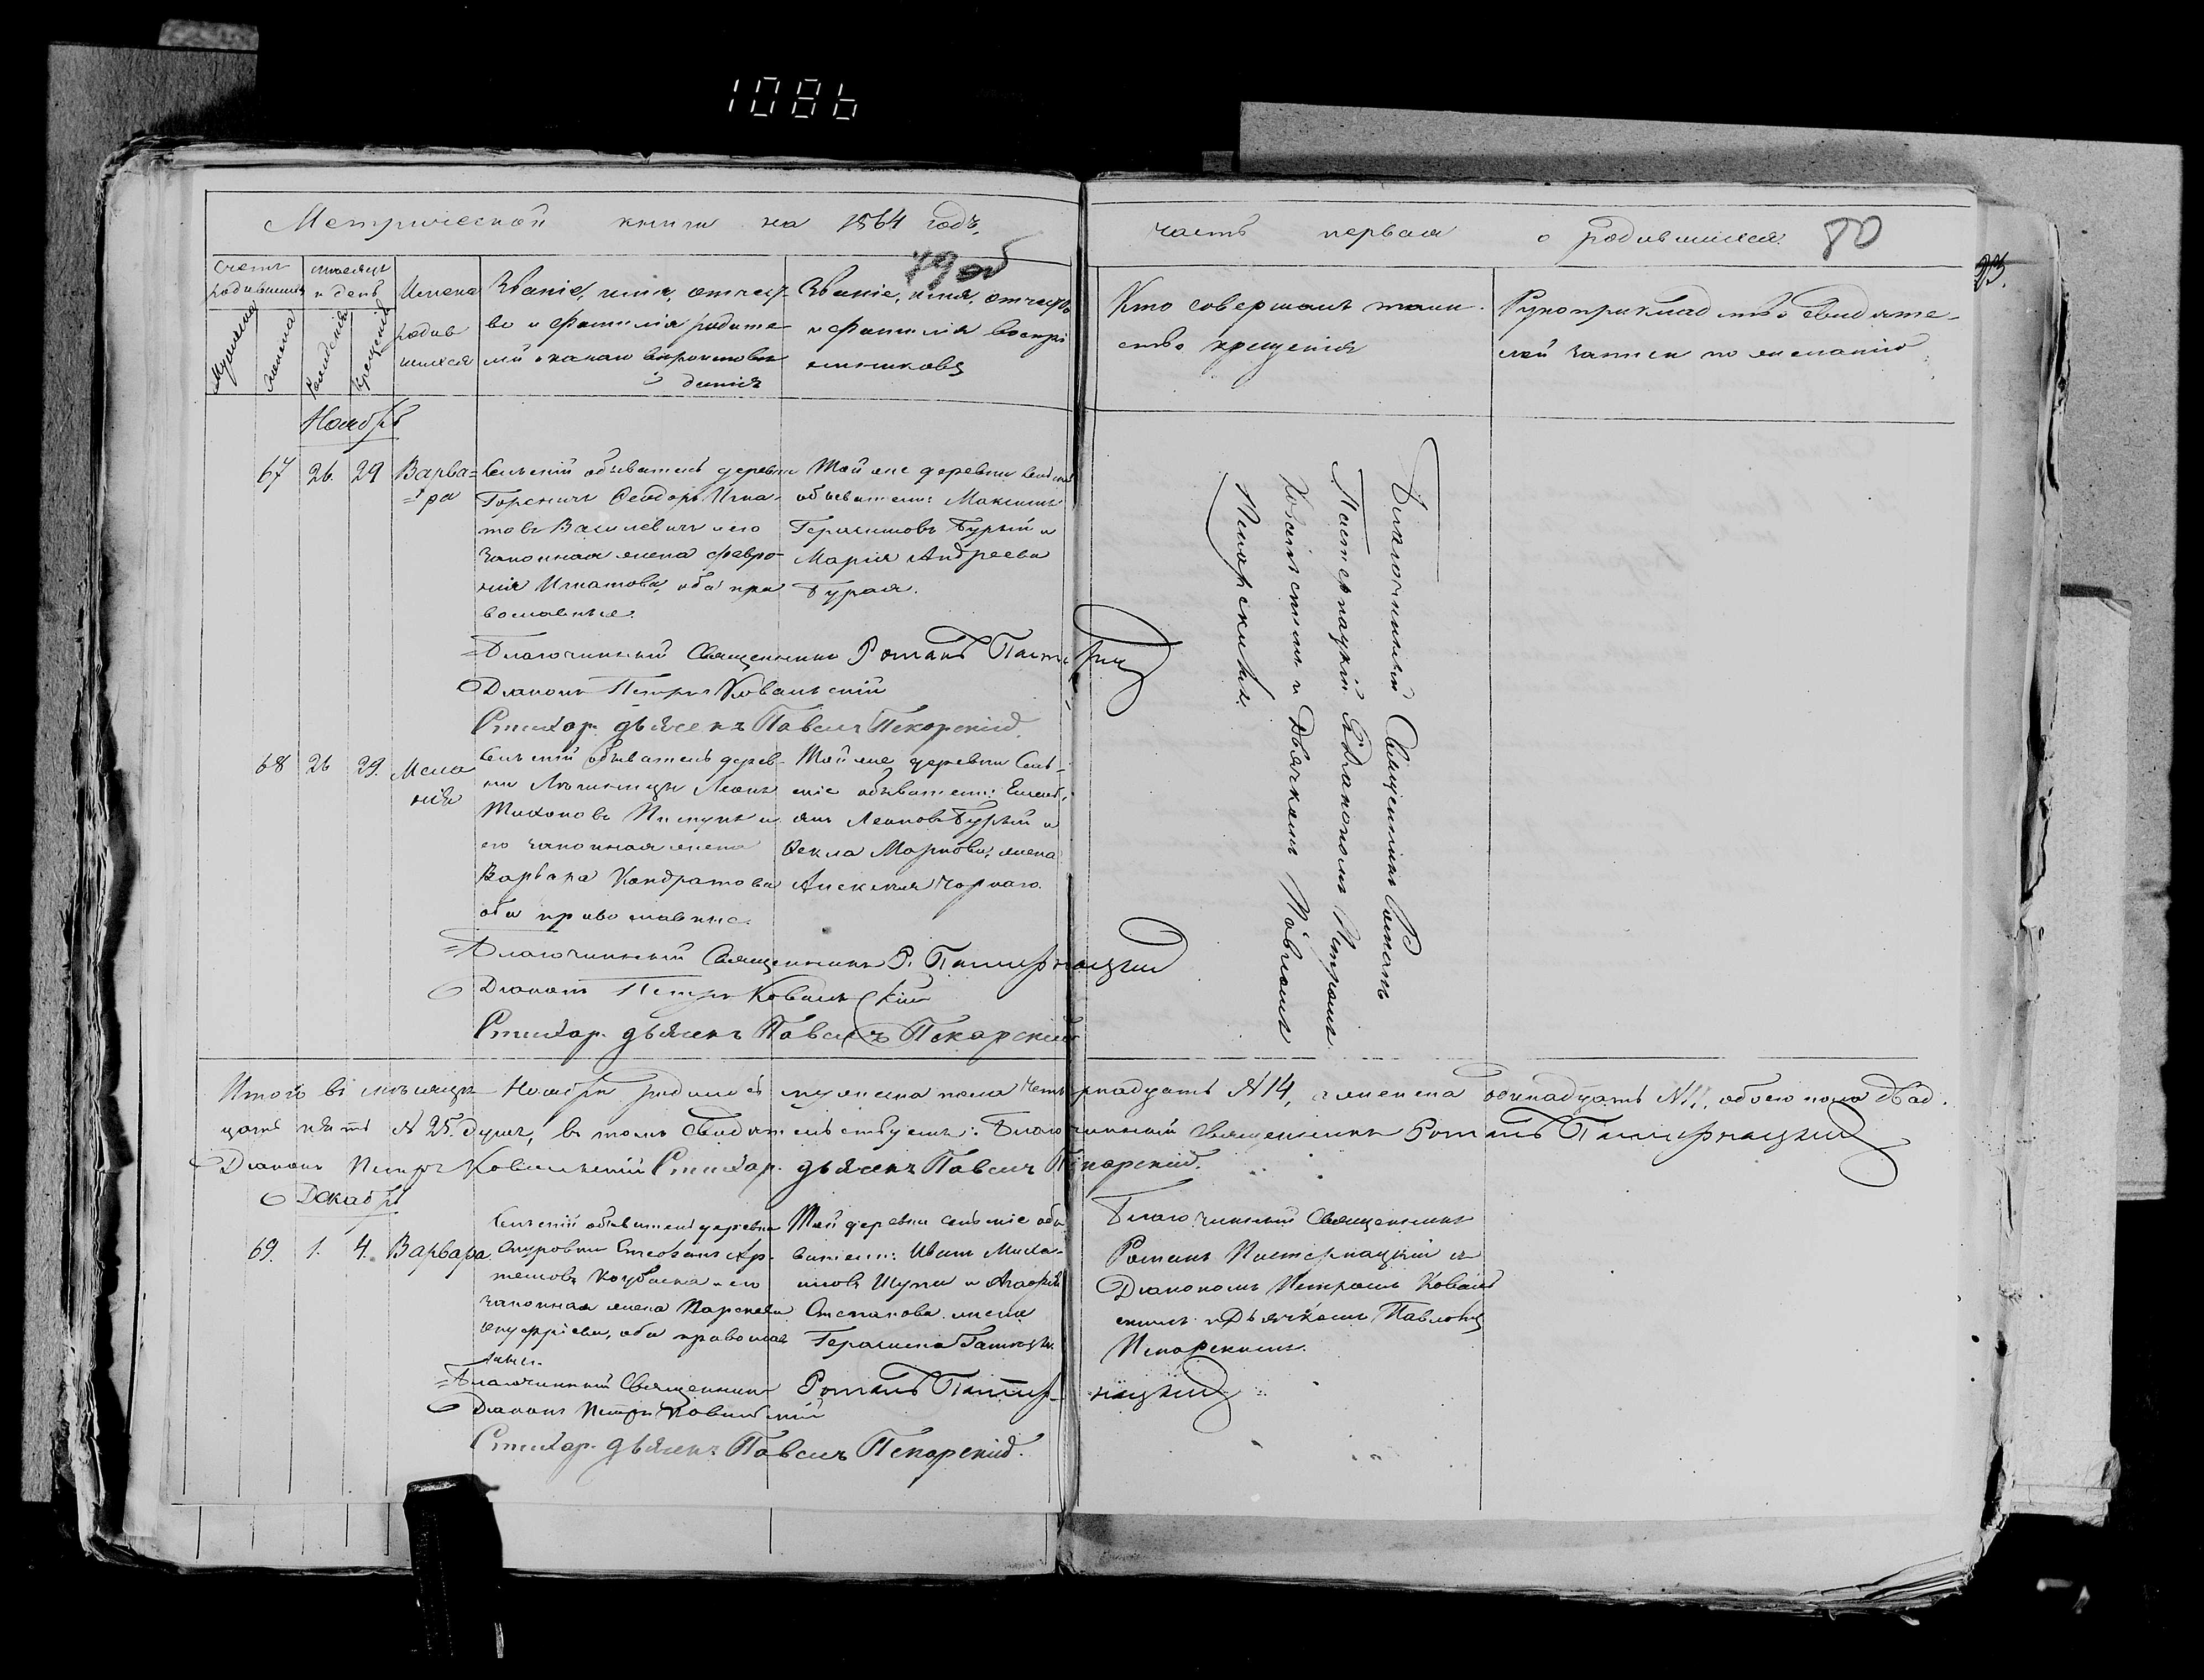 1086
Метрической книги на 1864 годъ,
часть первая о родившихся.
79 об
80
23.
Счетъ родившихся
Мужеска
Женска
мѣсяцъ и день
Рожденія
Крещенія
Имена родив
шихся
Званіе, имя, отчест-
во и фамилія родите-
лей и какаго вѣроисповѣ
данія
Званіе, имя, отчество
и фамилія воспрі
емниковъ
Кто совершалъ таин-
ство крещенія
Рукоприкладство свидѣте-
лей записи по желанію
Ноябрь
67 26. 29 Варва=
=ра
Сельскій обыватель деревни
Ѳеодоръ Игна-
товъ Василевичъ и его
законная жена Февро-
нія Игнатова, оба пра
вославные.
Той же деревни сельскіе
обыватели: Максимъ
Герасимовъ Бурый и
Марія Андреева
Бурая.
Благочинный Священникъ Романъ
Діаконъ Петръ Ковальскій
Стихар. дьячекъ Павелъ Пекарскій.
68 26 29. Мела
нія
Сельскій обыватель дерев-
ни Леонъ
Тихоновъ и
его законная жена
Варвара Кондратова
оба православные.
Той же деревни Сель-
скіе обыватели:
Леоновъ Бурый и
Ѳекла Маркова, жена
Алексѣя Чорнаго.
Благочинный Священникъ Р. Пастернацкій
Діаконъ Петръ Ковальскій
Стихар. дьячекъ Павелъ Пекарскій
Благочинный Священникъ Романъ
Пастернацкій съ Діакономъ Петромъ
Ковальскимъ и Дьячкомъ Павломъ
Пекарскимъ.
Итого въ мѣсяцѣ Ноябрѣ родилось мужеска пола четырнадцать №14, а женска одинадцать №11. обоего пола двад.
цать пять № 25. душъ, въ томъ свидѣтельствуемъ: Благочинный Священникъ Романъ Пастернацкій
Діаконъ Петръ Ковальскій Стихар. дьячекъ Павелъ Пекарскій.
Декабрь
69. 1. 4. Варвара
Сельскій обыватель деревни
Ар-
темовъ Коубаска и его
законная жена Параскева
Онуфріева, оба православ
ные.
Той деревни сельскіе обы
ватели: Иванъ Миха-
иловъ и Агафія
Степанова жена
Герасима
Благочинный Священникъ
Романъ Пастернацкій съ
Діакономъ Петромъ Коваль
скимъ и Дьячкомъ Павломъ
Пекарскимъ.
Благочинный Священникъ Романъ Пастернацкій
Діаконъ Петръ Ковальскій
Стихар. дьячекъ Павелъ Пекарскій.